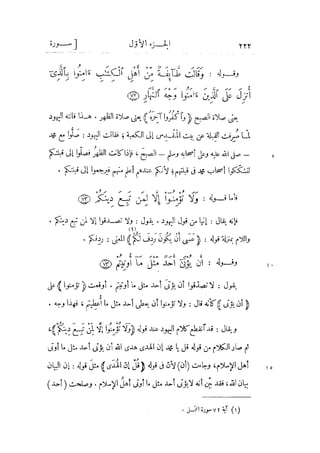 ٢٢٢ الجـزء الأوّل [ ســورة
وقــوله : وَقَالَت طَّآئِفَةٌ مِّنْ أَهْلِ ٱلْكِتَٰبِ ءَامِنُوا۟ بِٱلَّذِىٓ
أُنزِلَ عَلَى ٱلَّذِينَ ءَامَنُوا۟ وَجْهَ ٱلنَّهَارِ ﴿٧٢﴾
يعنى صلاة الصبح ﴿ وَٱكْفُرُوٓا۟ ءَاخِرَهُۥ ﴾ يعنى صلاة الظهر . هــذا قالته اليهود
لمــا صُرِفت القبلة عن بيت المقدس إلى الكعبة ؛ فقالت اليهود : صلُّوا مع محمد
٥ — صلى الله عليه وعلى أصحابه وسلم — الصبح ، فإذا كانت الظهر فصلُّوا إلى قبلتكم
لتشككوا أصحاب محمد فى قبلتهم ؛ لأنكم عندهم أعلم منهم فيرجعوا إلى قبلتكم .
فأما قــوله : وَلَا تُؤْمِنُوٓا۟ إِلَّا لِمَن تَبِعَ دِينَكُمْ ﴿٧٣﴾
فإنه يقال : إنها من قول اليهود . يقول : ولا تصــدقوا إلا لمن تبع دينكم .
واللام بمنزلة قوله : ﴿ عَسَىٰٓ أَن يَكُونَ رَدِفَ لَكُم ﴾(١) المعنى : ردفكم .
١٠ وقــوله : أَن يُؤْتَىٰٓ أَحَدٌ مِّثْلَ مَآ أُوتِيتُمْ ﴿٧٣﴾
يقول : لا تصدّقوا أن يؤتى أحد مثل ما أوتيتم . أوقعت ﴿ تؤمنوا ﴾ على
﴿ أن يؤتى ﴾ كأنه قال : ولا تؤمنوا أن يعطى أحد مثل ما أُعطِيتم ، فهذا وجه .
ويقال : قد ٱنقطع كلام اليهود عند قوله ﴿ وَلَا تُؤْمِنُوٓا۟ إِلَّا لِمَن تَبِعَ دِينَكُمْ ﴾،
ثم صار الكلام من قوله قل يا محمد إن الهدى هدى الله أن يؤتى أحد مثل ما أوتى
١٥ أهل الإسلام، وجاءت (أن) لأن فى قوله ﴿ قُلْ إِنَّ ٱلْهُدَىٰ ﴾ مثل قوله : إن البيان
بيان الله، فقد بيّن أنه لا يؤتى أحد مثل ما أوتى أهلُ الإسلام . وصلحت (أحد)
(١) آية ٧٢ سورة النمل .